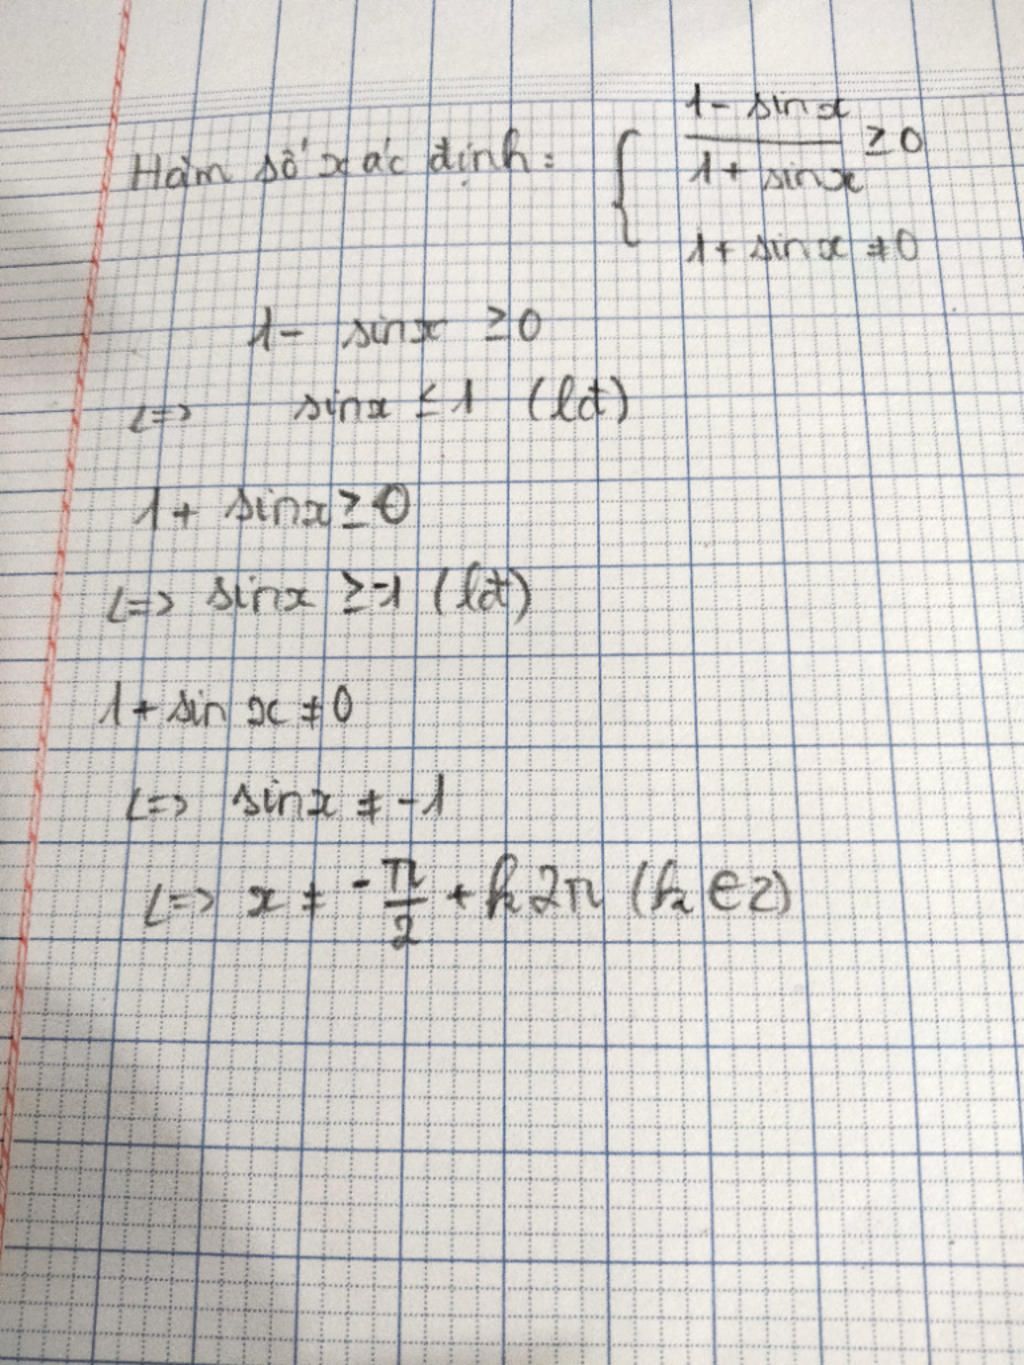 Hàm số xác định: { (1 - sinx)/(1 + sinx) ≥ 0
1 + sinx ≠ 0
1 - sinx ≥ 0
<=> sinx ≤ 1 (lđ)
1 + sinx ≥ 0
<=> sinx ≥ -1 (lđ)
1 + sin x ≠ 0
<=> sinx ≠ -1
<=> x ≠ -π/2 + k2π (k ∈ Z)